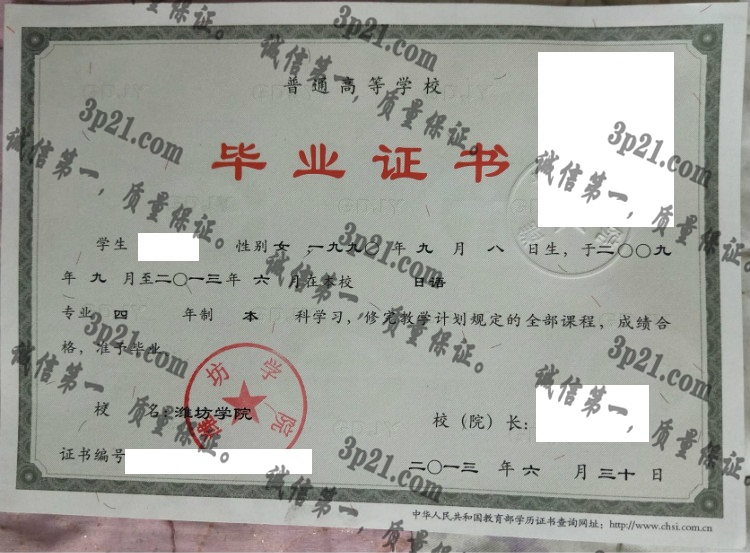 普通高等学校
毕业证书
学生 性别 女，一九九〇年 九 月 八 日生，于二〇〇九
年 九 月至二〇一三年 六 月在本校 日语
专业 四 年制 本 科学习，修完教学计划规定的全部课程，成绩合
格，准予毕业
潍坊学院
校 名：潍坊学院 校（院）长：
证书编号
二〇一三 年 六 月 三十 日
中华人民共和国教育部学历证书查询网址：http://www.chsi.com.cn
3p21.com
诚信第一，质量保证。
3p21.com
诚信第一，质量保证。
3p21.com
诚信第一，质量保证。
3p21.com
诚信第一，质量保证。
3p21.com
诚信第一，质量保证。
3p21.com
诚信第一，质量保证。